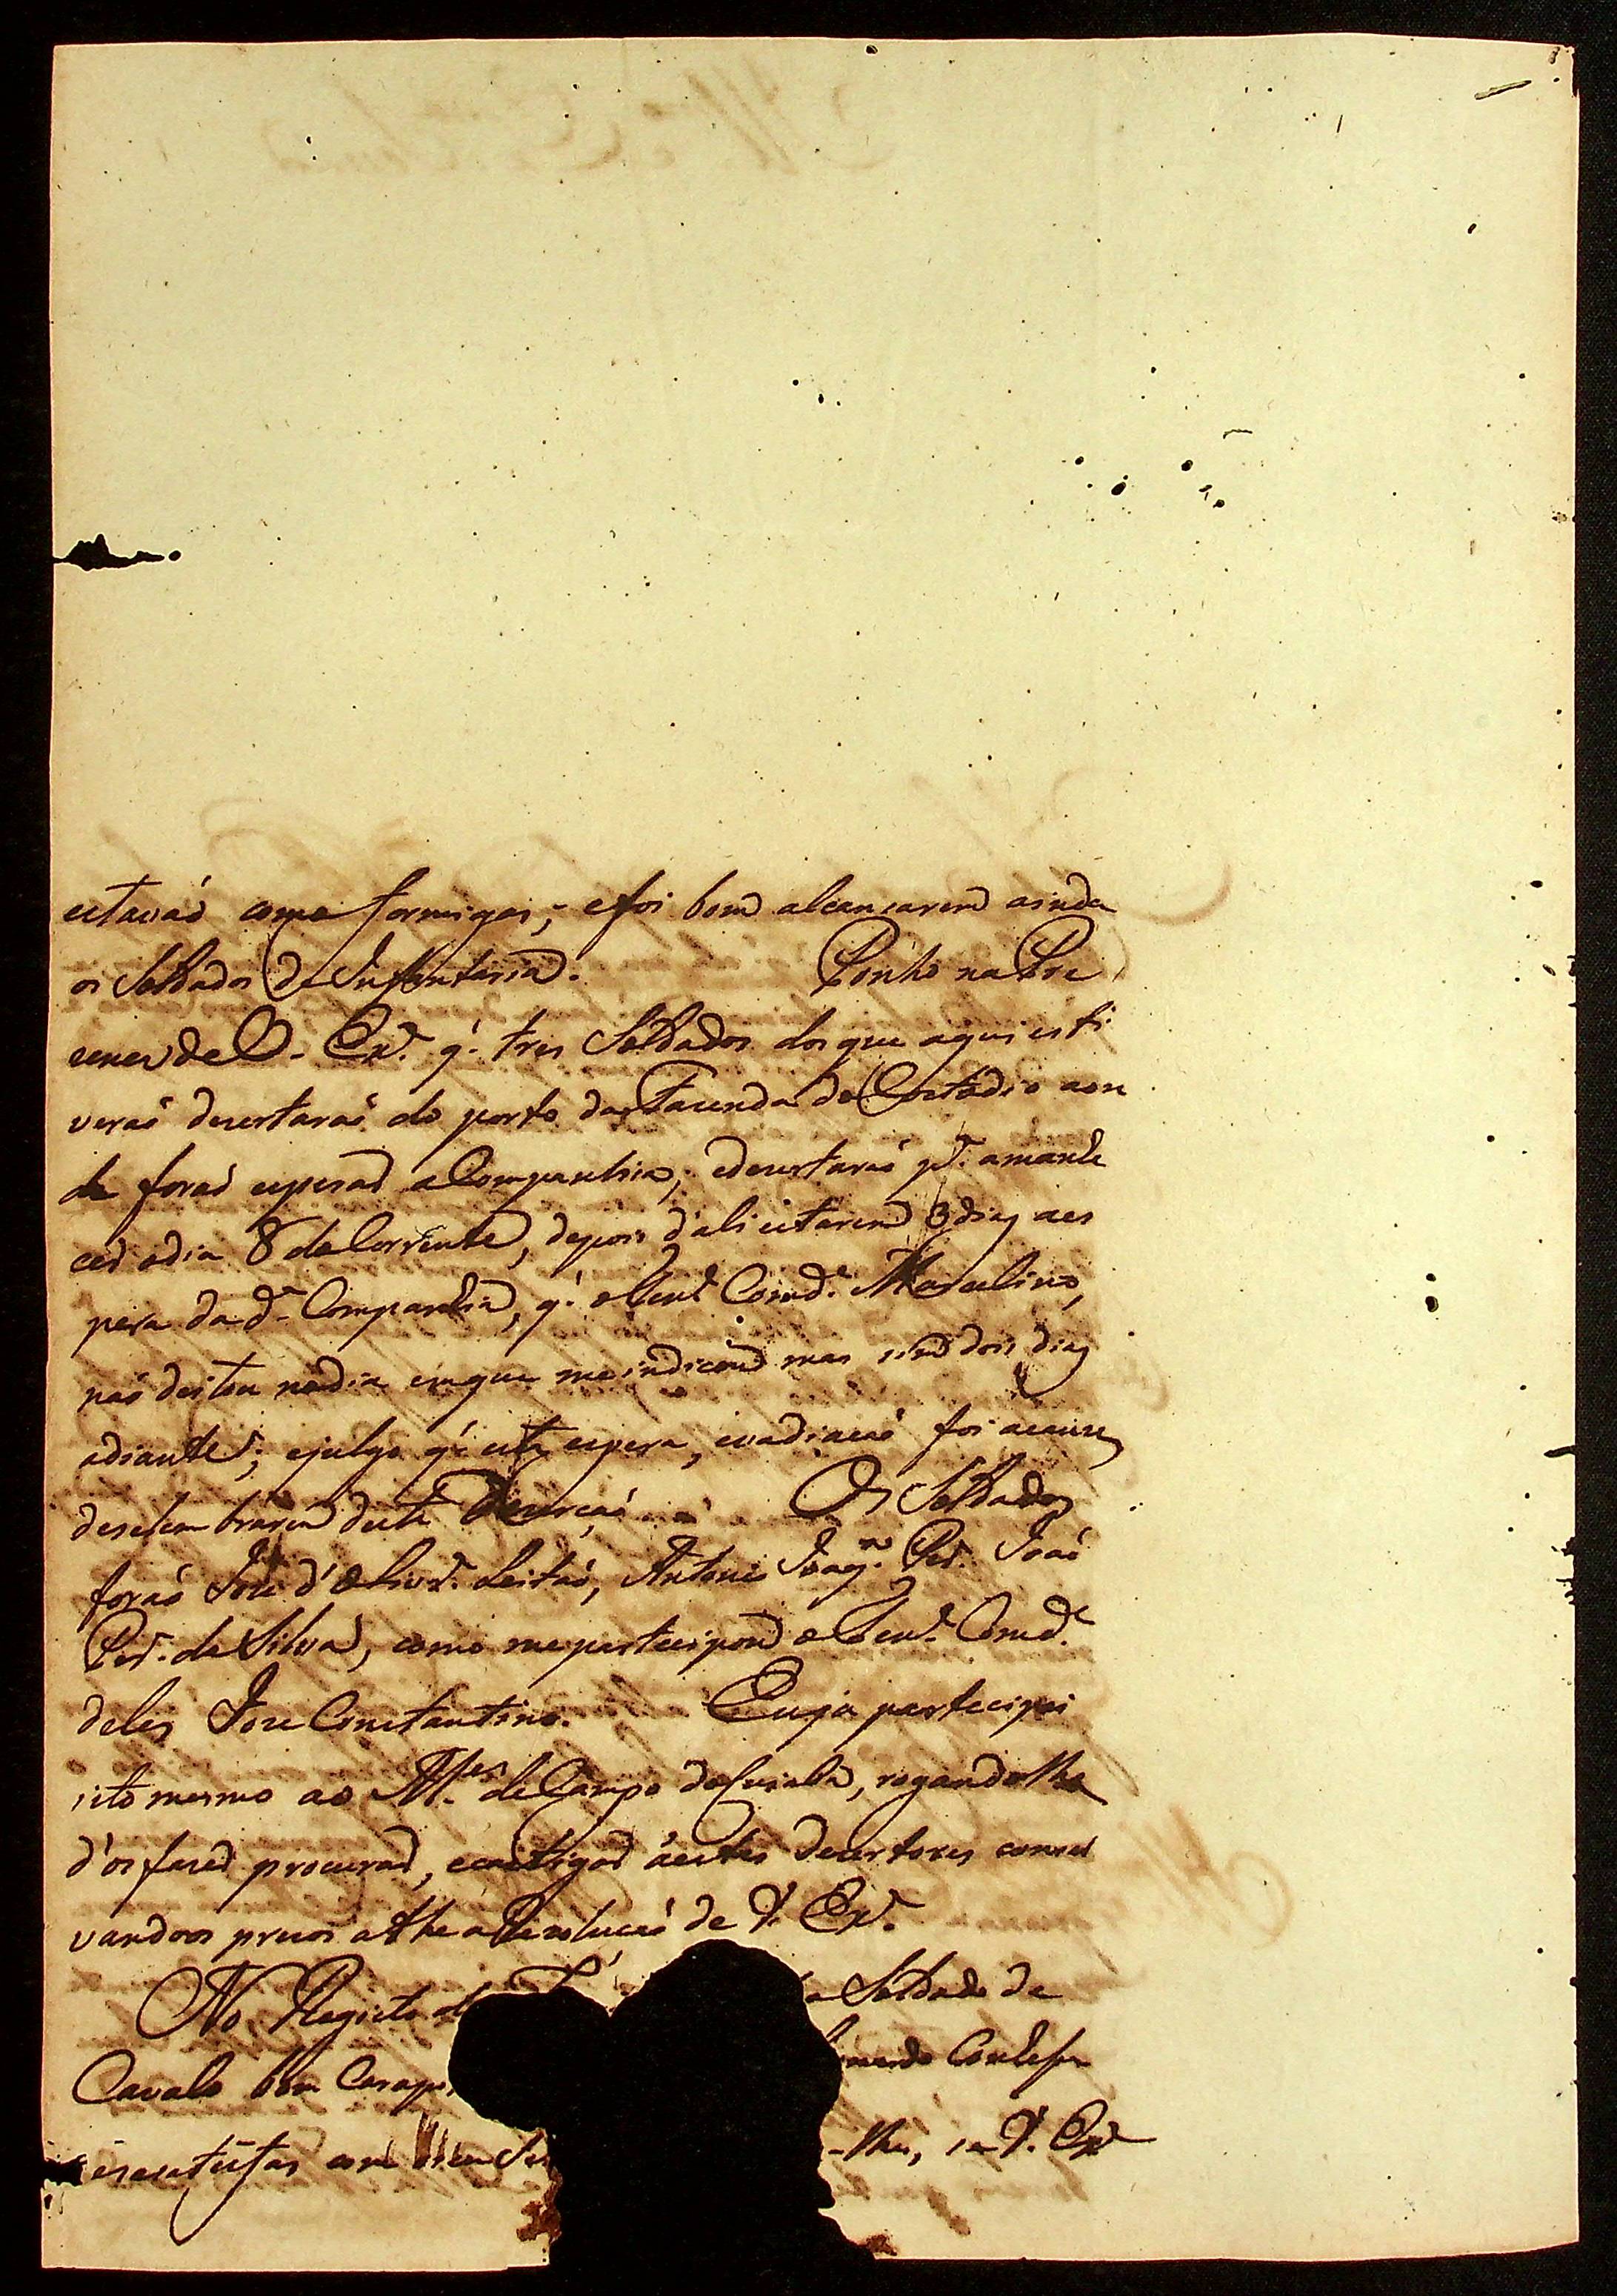 estavaó como formigas; e foi bom alcansarem ainda
os Soldados de Infantaria. Ponho na Pre
senca de V. Exª. q'. tres Soldados dos que aqui esti
veraó desertaraó do porto da Fazenda do Custodio aon
de foraó esperar a Companhia; e desertaraó pª. amanhe
cer o dia 8 do Corrente, depois d'ali estarem 3 dias aes
pera da dª. Companhia, q'. o Tenᵉ. Comdᵉ. Marcelino,
naó deitou no dia em que me indicou mas sim dois dias
adiante; e julgo q'. esta espera, e vadiacaó foi acauza
deselembrarem desta Desercaó. Os Soldados
foraó Joze d'Olivrª. Leitaó, Antonio Joaqᵐ. Perª. Joaó
Perª. da Silva, como me partecipou o Tenᵉ. Comdᵉ.
deles Joze Constantino. Eu ja partecipei
isto mesmo ao Mᵉˢ. de Campo do Cuiabá, rogandolhe
d'os fazer procurar, e castigar áestes Desertores conser
vandoos prezos athe a Rezolucaó de V. Exª.
No Registo do a Soldado de
Cavalo bom Conhesa
com lhe, se V. Exª